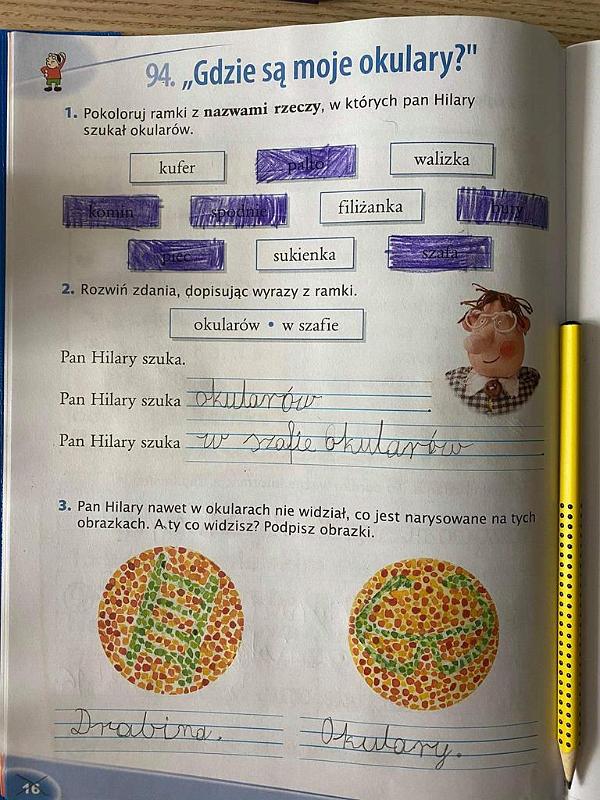 94. „Gdzie są moje okulary?"
1. Pokoloruj ramki z nazwami rzeczy, w których pan Hilary
szukał okularów.
kufer palto walizka
komin spodnie filiżanka buty
piec sukienka szafa
2. Rozwiń zdania, dopisując wyrazy z ramki.
okularów • w szafie
Pan Hilary szuka.
Pan Hilary szuka okularów .
Pan Hilary szuka w szafie okularów .
3. Pan Hilary nawet w okularach nie widział, co jest narysowane na tych
obrazkach. A ty co widzisz? Podpisz obrazki.
Drabina. Okulary.
16